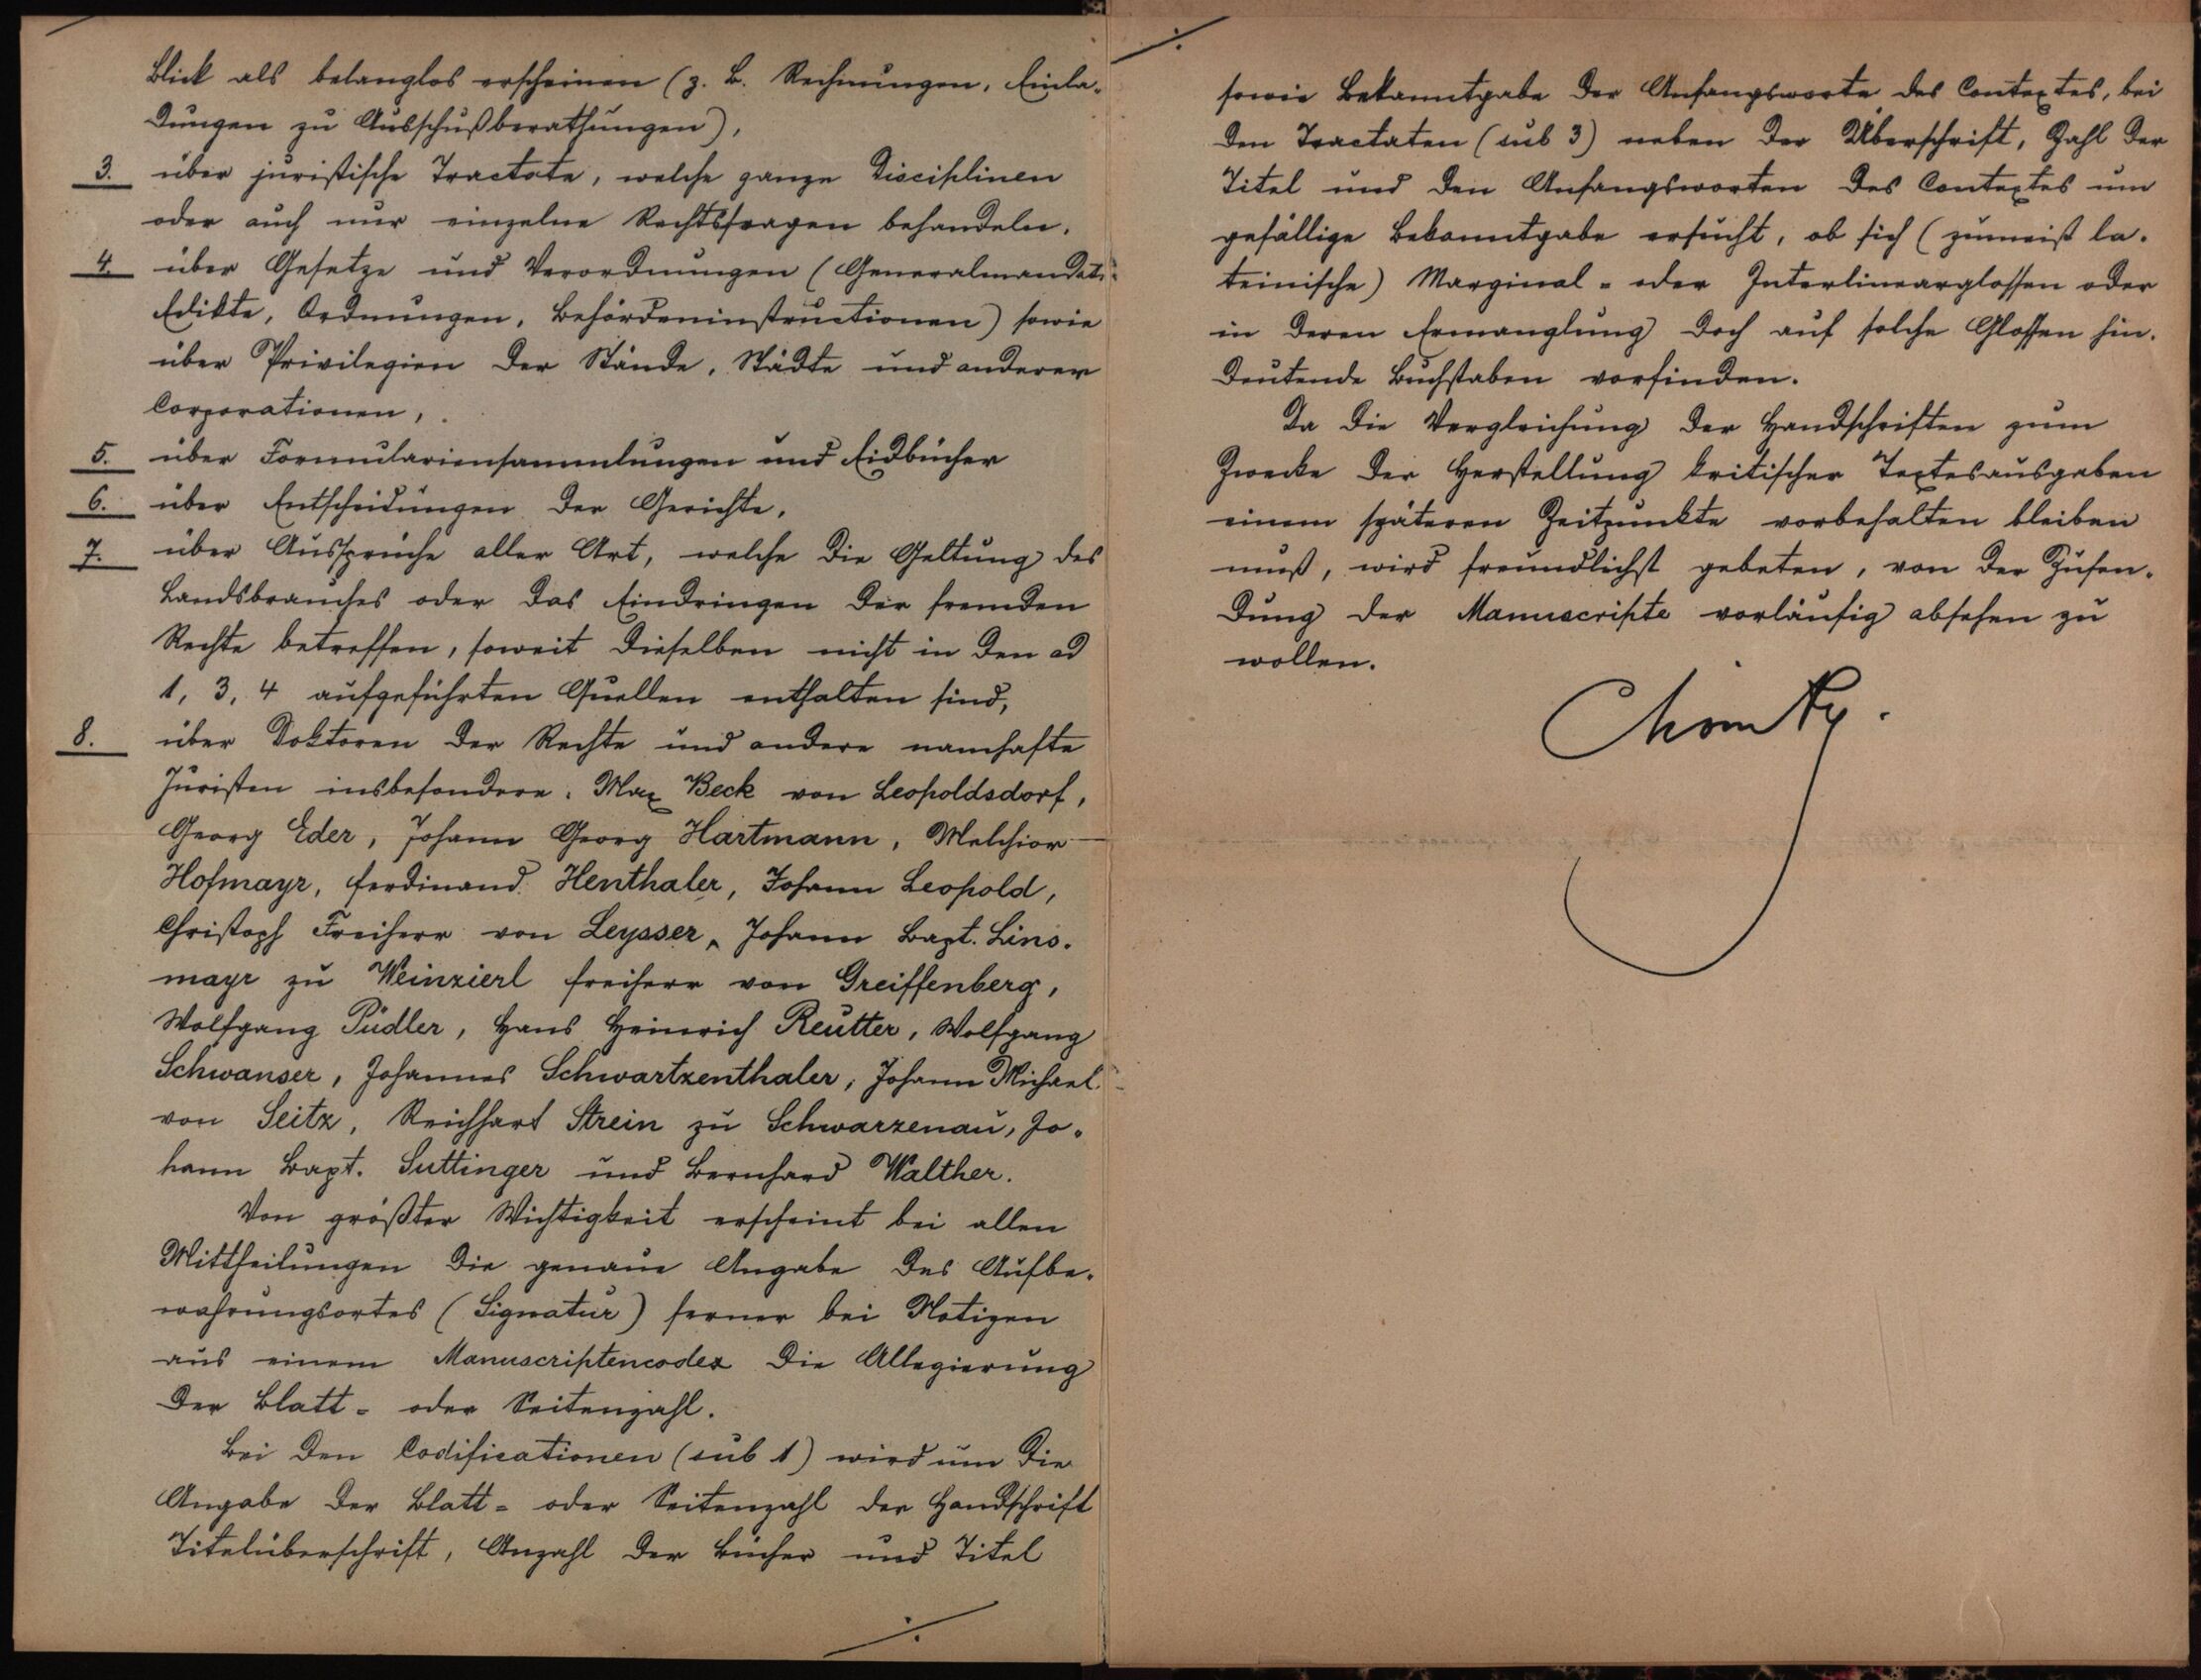 Blick als belanglos erscheinen (z. B. Rechnungen, Einla-
dungen zu Ausschußberathungen),
3. über juristische Tractate, welche ganze Disciplinen
oder auch nur einzelne Rechtsfragen behandeln,
4. über Gesetze und Verordnungen (Generalmandate,
Edikte, Ordnungen, Behördeninstructionen) sowie
über Privilegien der Stände, Städte und anderer
Corporationen,
5. über Formulariensammlungen und Eidbücher
6. über Entscheidungen der Gerichte,
7. über Aussprüche aller Art, welche die Geltung des
Landsbrauches oder das Eindringen der fremden
Rechte betreffen, soweit dieselben nicht in den ad
1, 3, 4 aufgeführten Quellen enthalten sind,
8. über Doktoren der Rechte und andere namhafte
Juristen insbesondere: Max Beck von Leopoldsdorf,
Georg Eder, Johann Georg Hartmann, Melchior
Hofmayr, Ferdinand Henthaler, Johann Leopold,
Christoph Freiherr von Leysser, Johann Bapt. Lins-
mayr zu Weinzierl Freiherr von Greiffenberg,
Wolfgang Püdler, Hans Heinrich Reutter, Wolfgang
Schwanser, Johannes Schwartzenthaler, Johann Michael
von Seitz, Reichhart Strein zu Schwarzenau, Jo-
hann Bapt. Suttinger und Bernhard Walther.
Von größter Wichtigkeit erscheint bei allen
Mittheilungen die genaue Angabe des Aufbe-
wahrungsortes (Signatur) ferner bei Notizen
aus einem Manuscriptencodex die Allegierung
der Blatt- oder Seitenzahl.
Bei den Codificationen (sub 1) wird um die
Angabe der Blatt- oder Seitenzahl der Handschrift
Titelüberschrift, Anzahl der Bücher und Titel
sowie Bekanntgabe der Anfangsworte des Contextes, bei
den Tractaten (sub 3) neben der Überschrift, Zahl der
Titel und den Anfangsworten des Contextes um
gefällige Bekanntgabe ersucht, ob sich (zumeist la-
teinische) Marginal- oder Interlinearglossen oder
in deren Ermanglung doch auf solche Glossen hin-
deutende Buchstaben vorfinden.
Da die Vergleichung der Handschriften zum
Zwecke der Herstellung kritischer Textesausgaben
einem späteren Zeitpunkte vorbehalten bleiben
muß, wird freundlichst gebeten, von der Zusen-
dung der Manuscripte vorläufig absehen zu
wollen.